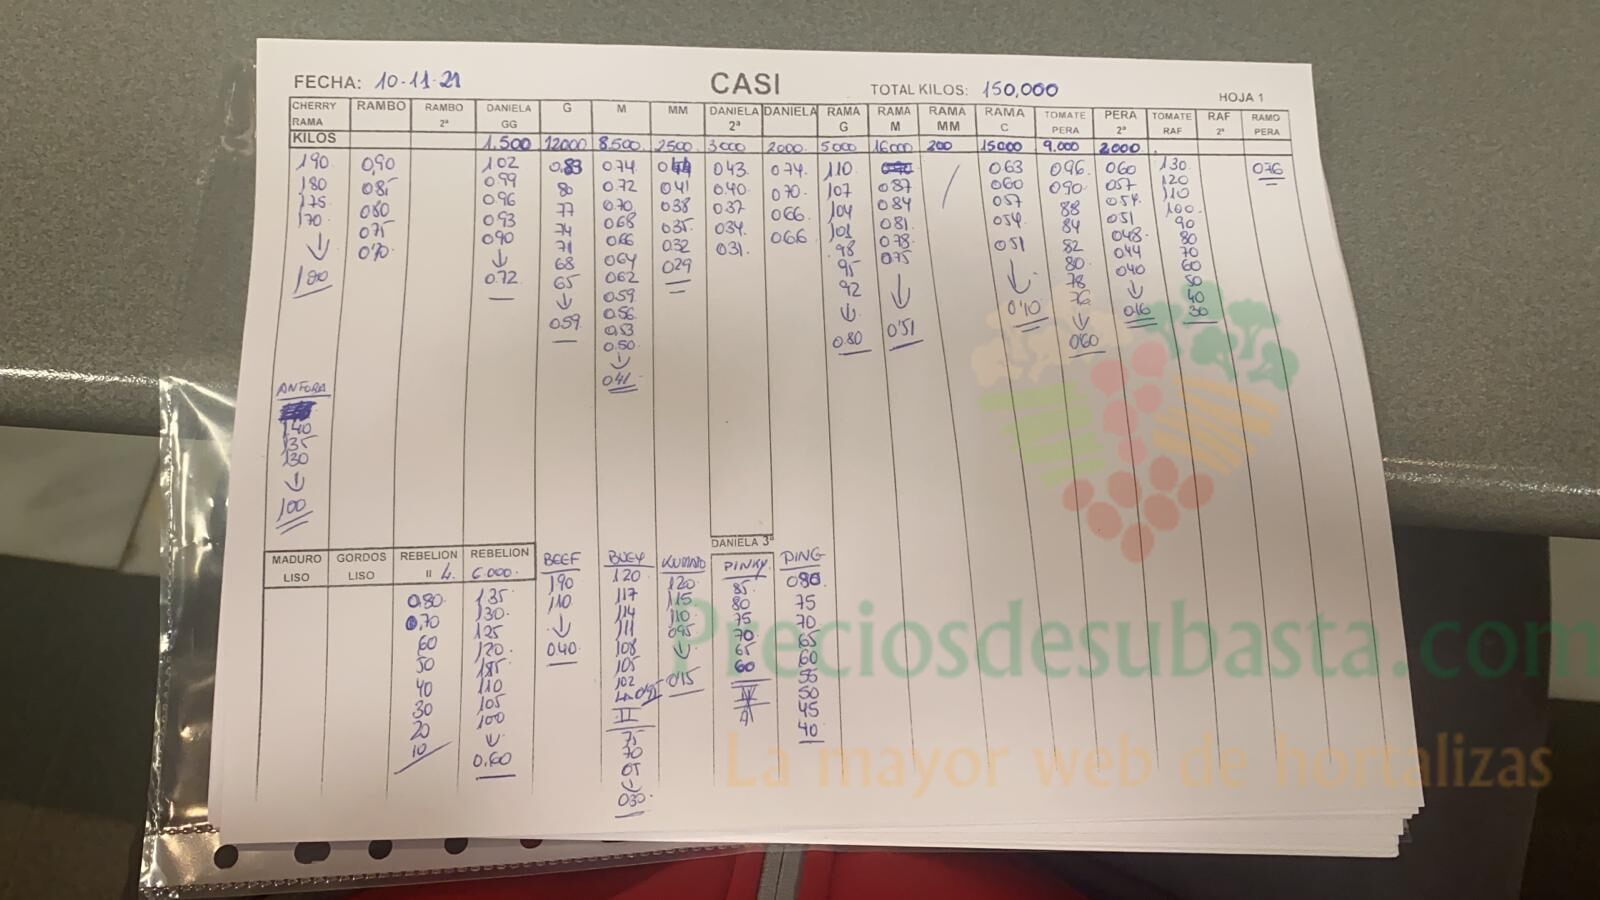 FECHA: 10-11-21 CASI TOTAL KILOS: 150,000 HOJA 1
CHERRY RAMA RAMBO RAMBO 2ª DANIELA GG G M MM DANIELA 2ª DANIELA RAMA G RAMA M RAMA MM RAMA C TOMATE PERA PERA 2ª TOMATE RAF RAF 2ª RAMO PERA
KILOS 1.500 12000 8.500 2500 3000 2000 5000 16000 200 15000 9.000 2000
190 0,90 102 0,83 0.74 0.43 074 110 0.63 096 060 130 076
180 0.85 0.99 80 0.72 041 0.40 070 107 0.87 060 090 057 120
175 080 0.96 77 0.70 038 0.37 066 104 084 057 88 054 110
170 075 0.93 74 0.68 035 034 066 101 081 054 84 051 100
↓ 070 090 71 0.66 032 031 98 078 051 82 048 90
180 ↓ 68 064 029 95 075 ↓ 80 044 80
0.72 65 062 92 ↓ 0'10 78 040 70
↓ 059 ↓ 0'51 76 ↓ 60
059 0.56 080 ↓ 016 50
053 0'60 40
0.50 30
↓
041
ANFORA
140
135
130
↓
100
DANIELA 3ª
MADURO LISO GORDOS LISO REBELION II REBELION 6.000 BEEF BUEY KUMATO PINKY PING
0,80 135 190 120 120 85 080
0,70 130 110 117 115 80 75
60 125 ↓ 114 110 75 70
50 120 040 111 095 70 65
40 108 ↓ 65 60
30 110 105 0'15 60 55
20 105 102 IV 50
10 100 II 45
↓ 75 40
0.60 70
↓
030
Preciosdesubasta.com
La mayor web de hortalizas